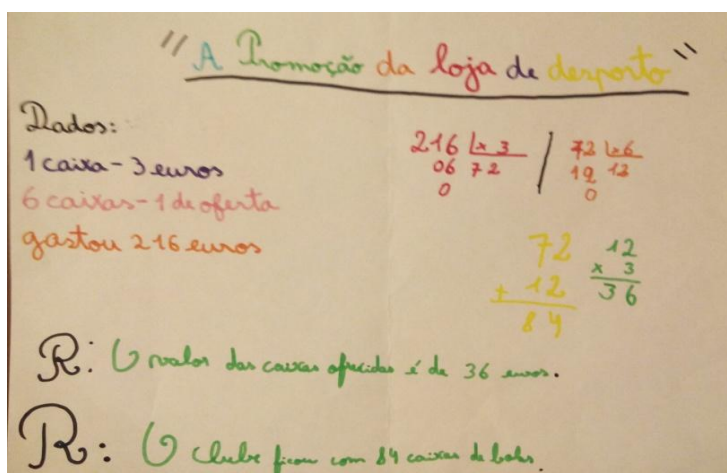 "A Promoção da loja de desporto"
Dados:
1 caixa - 3 euros
6 caixas - 1 de oferta
gastou 216 euros
216 |x 3
06 72
0
72 |x 6
12 12
0
72
+ 12
84
12
x 3
36
R: O valor das caixas ofrecidas é de 36 euros.
R: O clube ficou com 84 caixas de bolas.